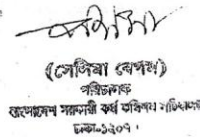 (সেলিমা বেগম)
পরিচালক
বাংলাদেশ সরকারী কর্ম কমিশন সচিবালয়
ঢাকা-১২০৭।